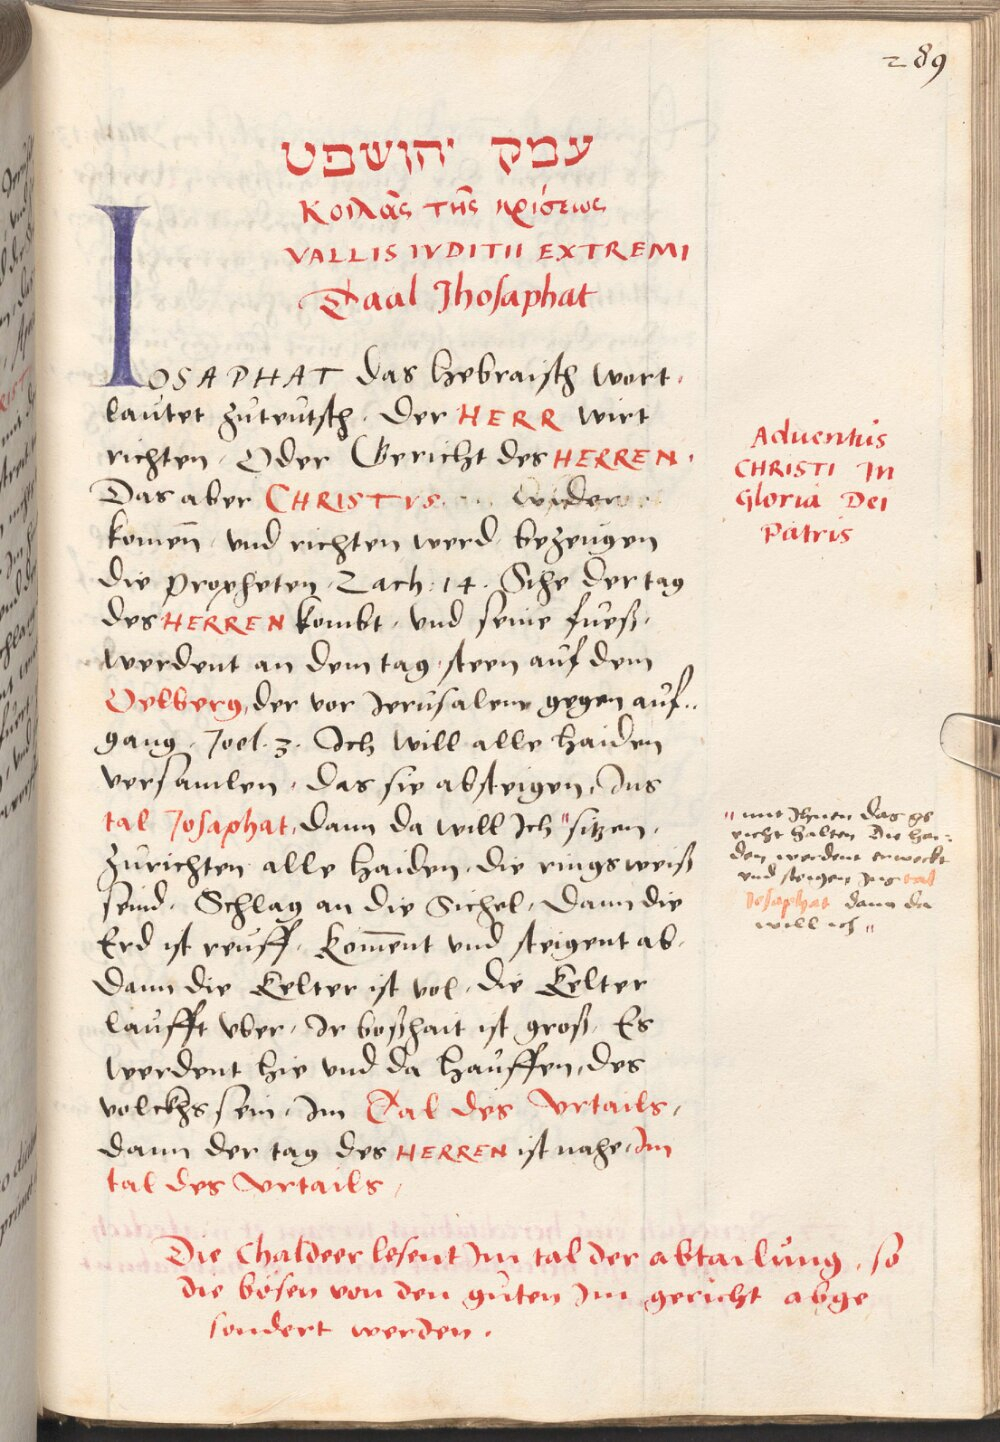 289
עמק יהושפט
Κοιλὰς τῆς κρίσεως
VALLIS IVDITII EXTREMI
Taal Jhosaphat
IOSAPHAT das hebraisch wort
lautet zuteutsch. der HERR wirt
richten, Oder Gericht des HERREN.
Das aber CHRISTVS wider
komen̄ vnd richten werd bezeugen
die propheten. Zach. 14. Sihe der tag
des HERREN kombt, vnd seine fueß,
werdent an dem tag steen auf dem
Oelberg, der vor Jerusalem gegen auf..
gang. Joel. 3. Ich will alle haiden
versamlen, das sie absteigen, Ins
tal Josaphat, dann da will Ich "sitzen,
zurichten alle haiden, die ringsweiß
seind, Schlag an die Sichel, Dann die
Erd ist reuff, Kom̄ent vnd steigent ab,
dann die Kelter ist vol, die Kelter
laufft vber, Ir boßhait ist groß, Es
werdent hie vnd da hauffen, des
volckhs sein, Im Tal des Vrtails,
dann der tag des HERREN ist nahe, Im
tal des Vrtails,
Die Chaldeer lesent Im tal der abtailung, so
die bösen von den guten Im gericht abge
sondert werden.
Aduentus
CHRISTI In
Gloria Dei
Patris
"mit Ihnen das ge
richt halten Die hai:
den werdent erweckt
vnd steigen Ins tal
Josaphat dann da
will ich "